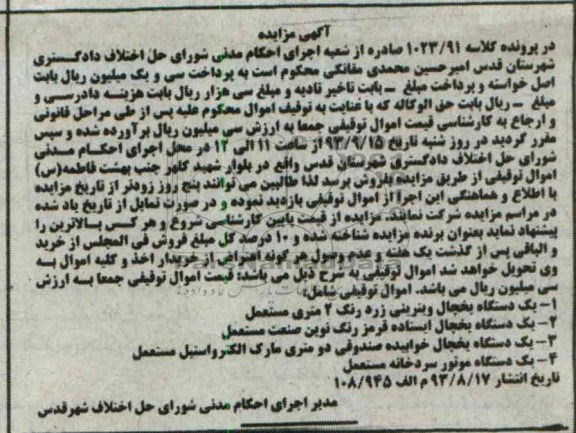 آگهی مزایده
در پرونده کلاسه ۱۰۲۳/۹۱ صادره از شعبه اجرای احکام مدنی شورای حل اختلاف دادگستری
شهرستان قدس امیرحسین محمدی مقانکی محکوم است به پرداخت سی و یک میلیون ریال بابت
اصل خواسته و پرداخت مبلغ ــ بابت تاخیر تادیه و مبلغ سی هزار ریال بابت هزینه دادرسی و
مبلغ ــ ریال بابت حق الوکاله که با عنایت به توقیف اموال محکوم علیه پس از طی مراحل قانونی
و ارجاع به کارشناسی قیمت اموال توقیفی جمعا به ارزش سی میلیون ریال برآورده شده و سپس
مقرر گردید در روز شنبه تاریخ ۹۳/۹/۱۵ از ساعت ۱۱ الی ۱۲ در محل اجرای احکام مدنی
شورای حل اختلاف دادگستری شهرستان قدس واقع در بلوار شهید کلهر جنب بهشت فاطمه(س)
اموال توقیفی از طریق مزایده بفروش برسد لذا طالبین می توانند پنج روز زودتر از تاریخ مزایده
با اطلاع و هماهنگی این اجرا از اموال توقیفی بازدید نموده و در صورت تمایل از تاریخ یاد شده
در مراسم مزایده شرکت نمایند. مزایده از قیمت پایین کارشناسی شروع و هر کس بالاترین را
پیشنهاد نماید بعنوان برنده مزایده شناخته شده و ۱۰ درصد کل مبلغ فروش فی المجلس از خرید
و الباقی پس از گذشت یک هفته و عدم وصول هر گونه اعتراض از خریدار اخذ و کلیه اموال به
وی تحویل خواهد شد اموال توقیفی به شرح ذیل می باشد: قیمت اموال توقیفی جمعا به ارزش
سی میلیون ریال می باشد. اموال توقیفی شامل:
۱- یک دستگاه یخچال ویترینی زرد رنگ ۲ متری مستعمل
۲- یک دستگاه یخچال ایستاده قرمز رنگ نوین صنعت مستعمل
۳- یک دستگاه یخچال خوابیده صندوقی دو متری مارک الکترواستیل مستعمل
۴- یک دستگاه موتور سردخانه مستعمل
تاریخ انتشار ۹۳/۸/۱۷ م الف ۱۰۸/۹۴۵
مدیر اجرای احکام مدنی شورای حل اختلاف شهرقدس